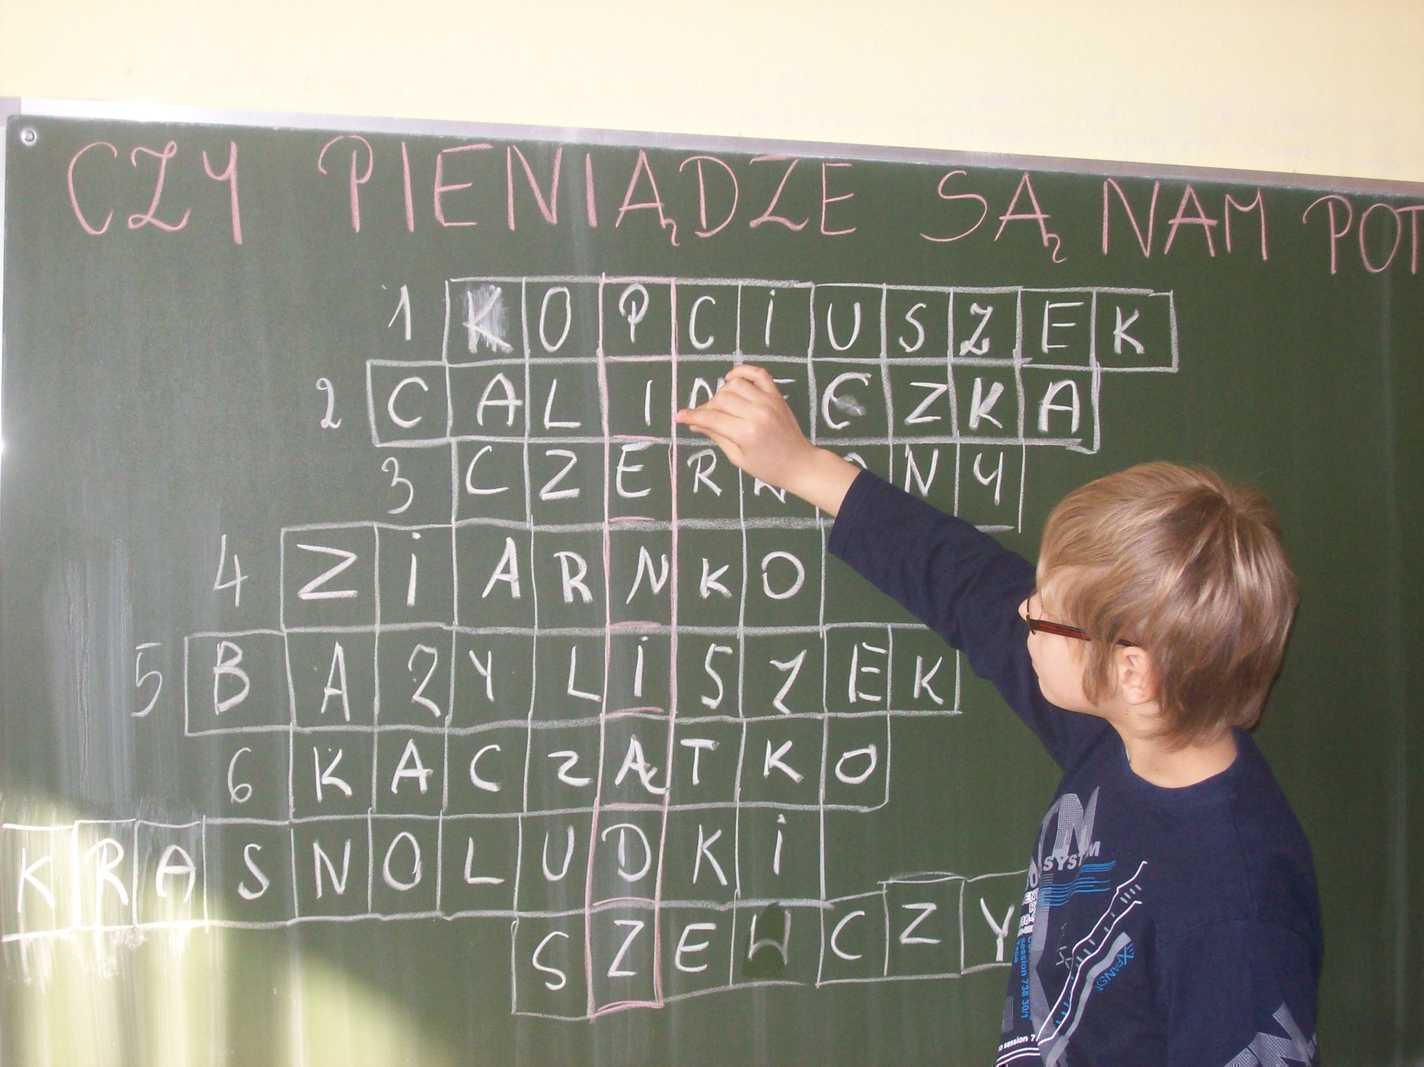 CZY PIENIĄDZE SĄ NAM POT
1 KOPCIUSZEK
2 CALINECZKA
3 CZERWONY
4 ZIARNKO
5 BAZYLISZEK
6 KACZĄTKO
KRASNOLUDKI
SZEWCZY
SYSTEM